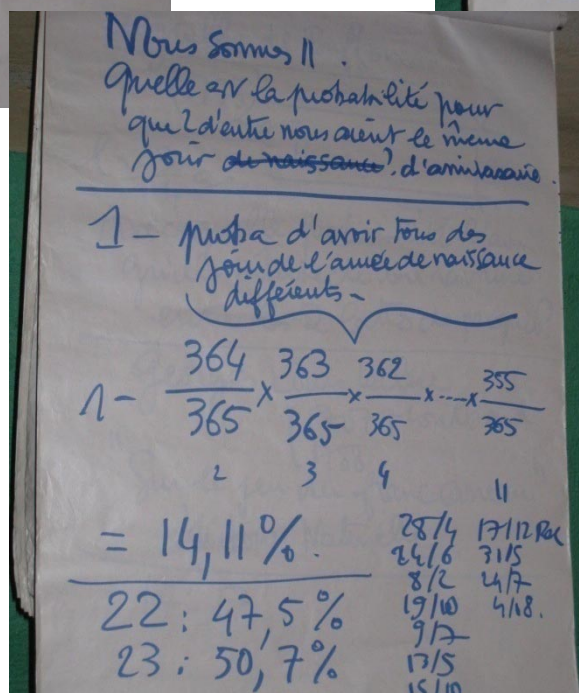 Nous sommes 11.
Quelle est la probabilité pour
que 2 d'entre nous aient le même
jour de naissance? d'anniversaire.
1 - proba d'avoir tous des
jours de l'année de naissance
différents -
1 - 364/365 × 363/365 × 362/365 × ... × 355/365
2 3 4 11
= 14,11%.
28/4 17/12
24/6 31/5
8/2 24/7
19/10 4/18.
22 : 47,5%
9/7
23 : 50,7%
13/5
15/10